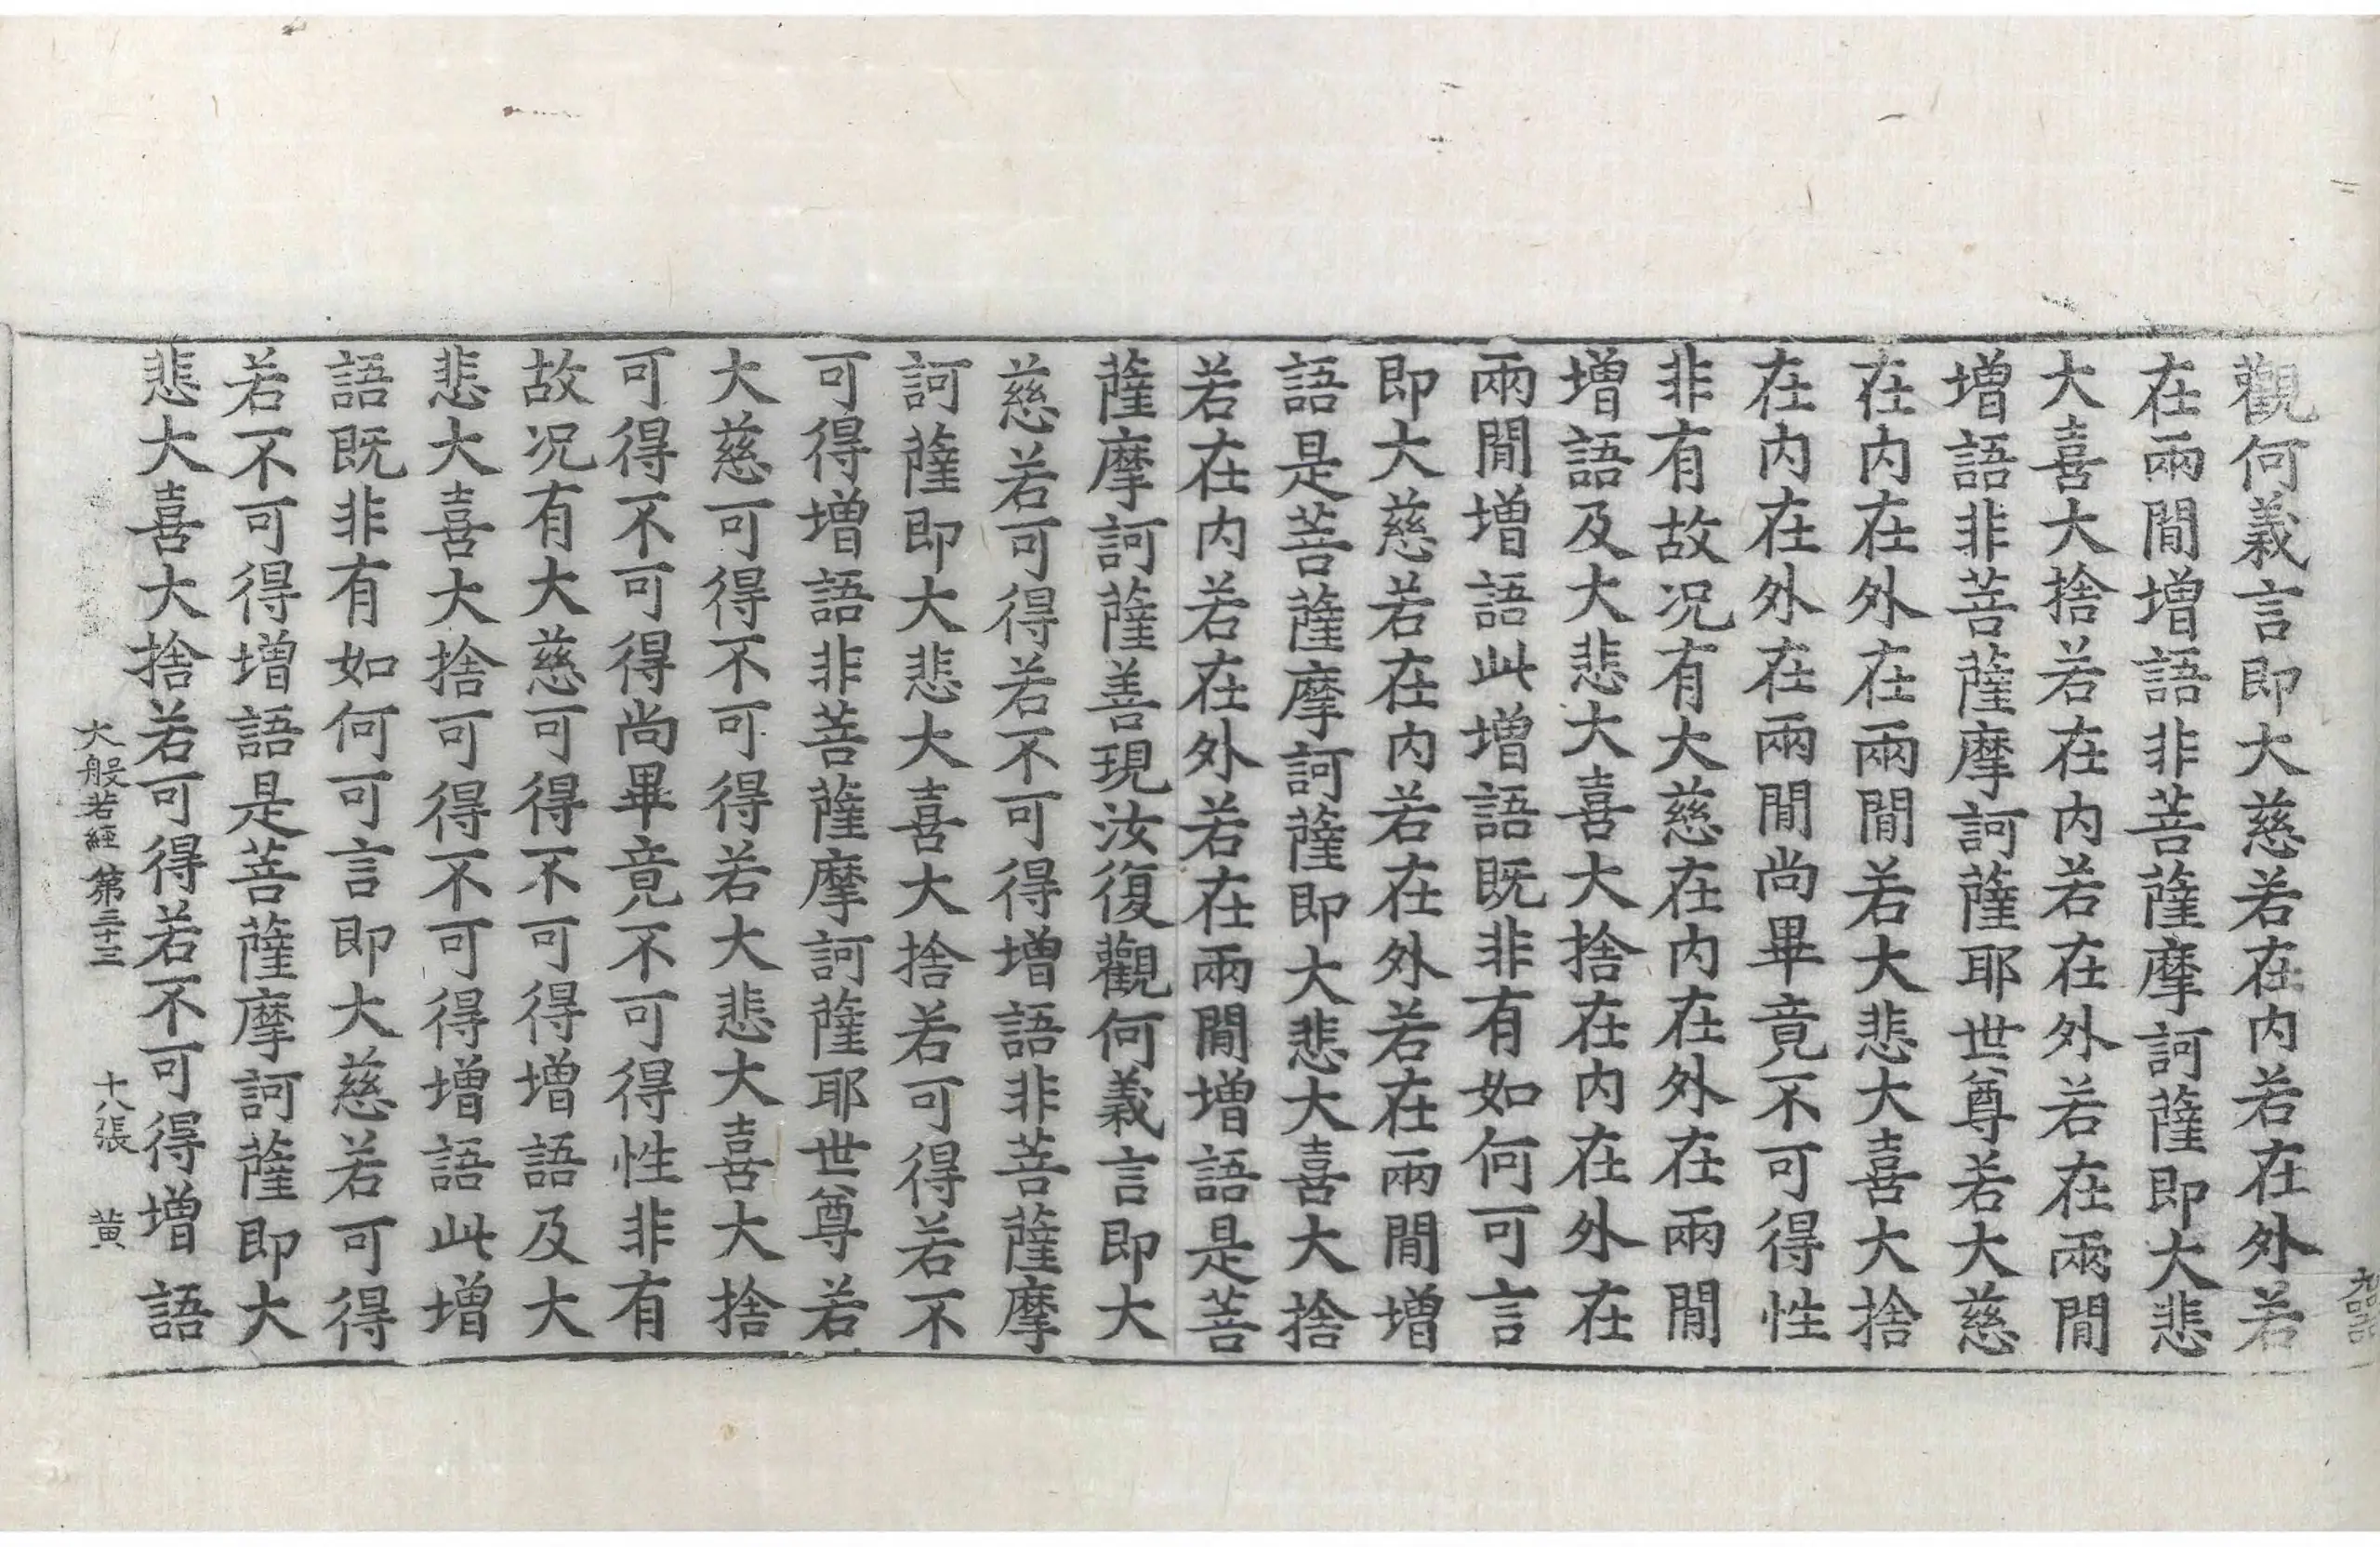 觀何義言即大慈若在内若在外若
在兩閒增語非菩薩摩訶薩即大悲
大喜大捨若在内若在外若在兩閒
增語非菩薩摩訶薩耶世尊若大慈
在内在外在兩閒若大悲大喜大捨
在内在外在兩閒尚畢竟不可得性
非有故况有大慈在内在外在兩閒
增語及大悲大喜大捨在内在外在
兩閒增語此增語既非有如何可言
即大慈若在内若在外若在兩閒增
語是菩薩摩訶薩即大悲大喜大捨
若在内若在外若在兩閒增語是菩
薩摩訶薩善現汝復觀何義言即大
慈若可得若不可得增語非菩薩摩
訶薩即大悲大喜大捨若可得若不
可得增語非菩薩摩訶薩耶世尊若
大慈可得不可得若大悲大喜大捨
可得不可得尚畢竟不可得性非有
故况有大慈可得不可得增語及大
悲大喜大捨可得不可得增語此增
語既非有如何可言即大慈若可得
若不可得增語是菩薩摩訶薩即大
悲大喜大捨若可得若不可得增語
大般若經第三十三 十八張 黃